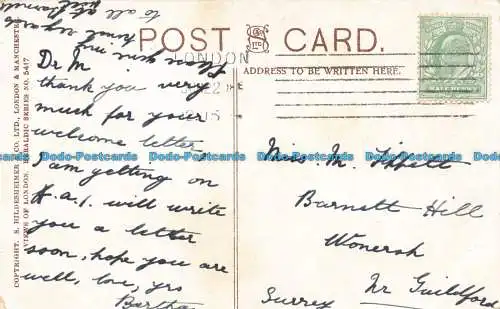 to all
POST CARD.
LONDON
ADDRESS TO BE WRITTEN HERE.
HALFPENNY
Dr M
thank you very
much for your
welcome letter
I am getting on
A.a.1. will write
you a letter
soon, hope you are
well, love, yrs
Bertha
Miss. M. Tippett
Barnett Hill
Wonersh
Nr Guildford
Surrey
COPYRIGHT. S. HILDESHEIMER & CO. LTD., LONDON & MANCHESTER
VIEWS OF LONDON. HERALDIC SERIES NO. 5417
Dodo-Postcards Dodo-Postcards Dodo-Postcards Dodo-Postcards